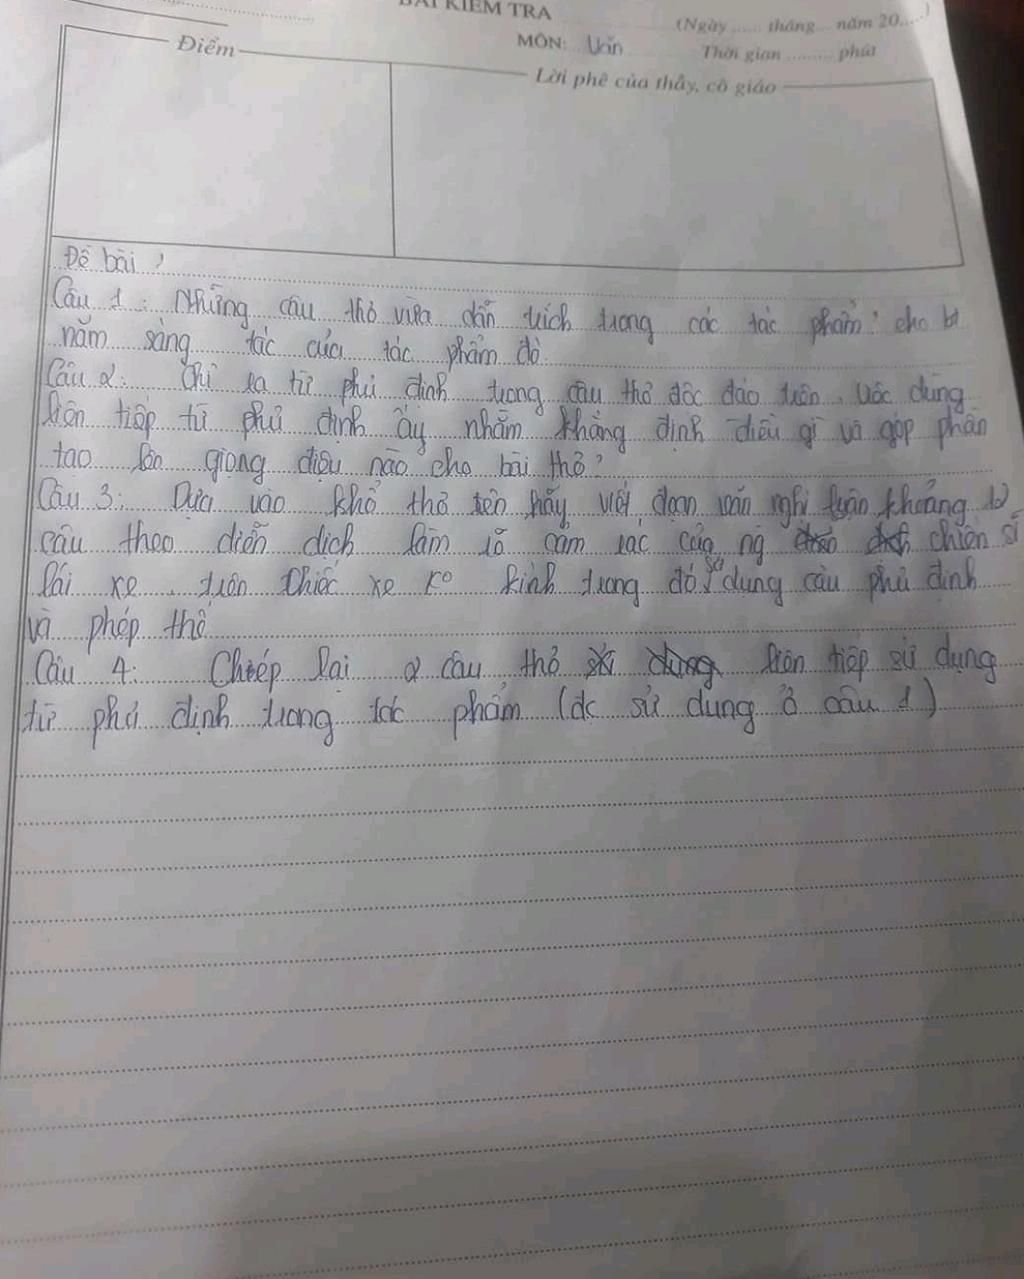 BÀI KIỂM TRA
(Ngày ...... tháng... năm 20.....)
MÔN: Văn
Thời gian ......... phút
Điểm
Lời phê của thầy, cô giáo
Đề bài :
Câu 1 : Những câu thơ vừa dẫn trích trong các tác phẩm? cho b
năm sáng tác của tác phẩm đó.
Câu 2: Chỉ ra từ phủ định trong câu thơ độc đáo trên. Việc dùng
liên tiếp từ phủ định ấy nhằm khẳng định điều gì và góp phần
tạo lên giọng điệu nào cho bài thơ?
Câu 3: Dựa vào khổ thơ trên hãy viết đoạn văn nghị luận khoảng 12
câu theo diễn dịch làm rõ cảm xác của ng chiến sĩ
lái xe trên chiếc xe ko kính trong đó sử dụng câu phủ định
và phép thế
Câu 4: Chép lại 2 câu thơ liên tiếp sử dụng
từ phủ định trong tác phẩm (đc sử dụng ở câu 1)